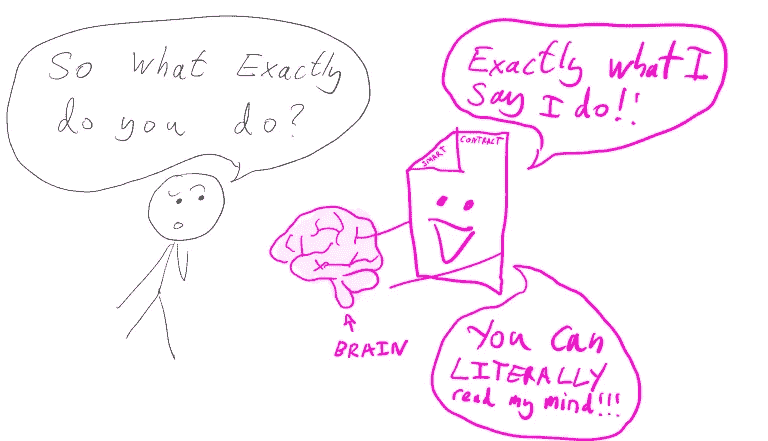 So what Exactly
do you do?
Exactly what I
Say I do!!
SMART
CONTRACT
BRAIN
You can
LITERALLY
read my mind!!!